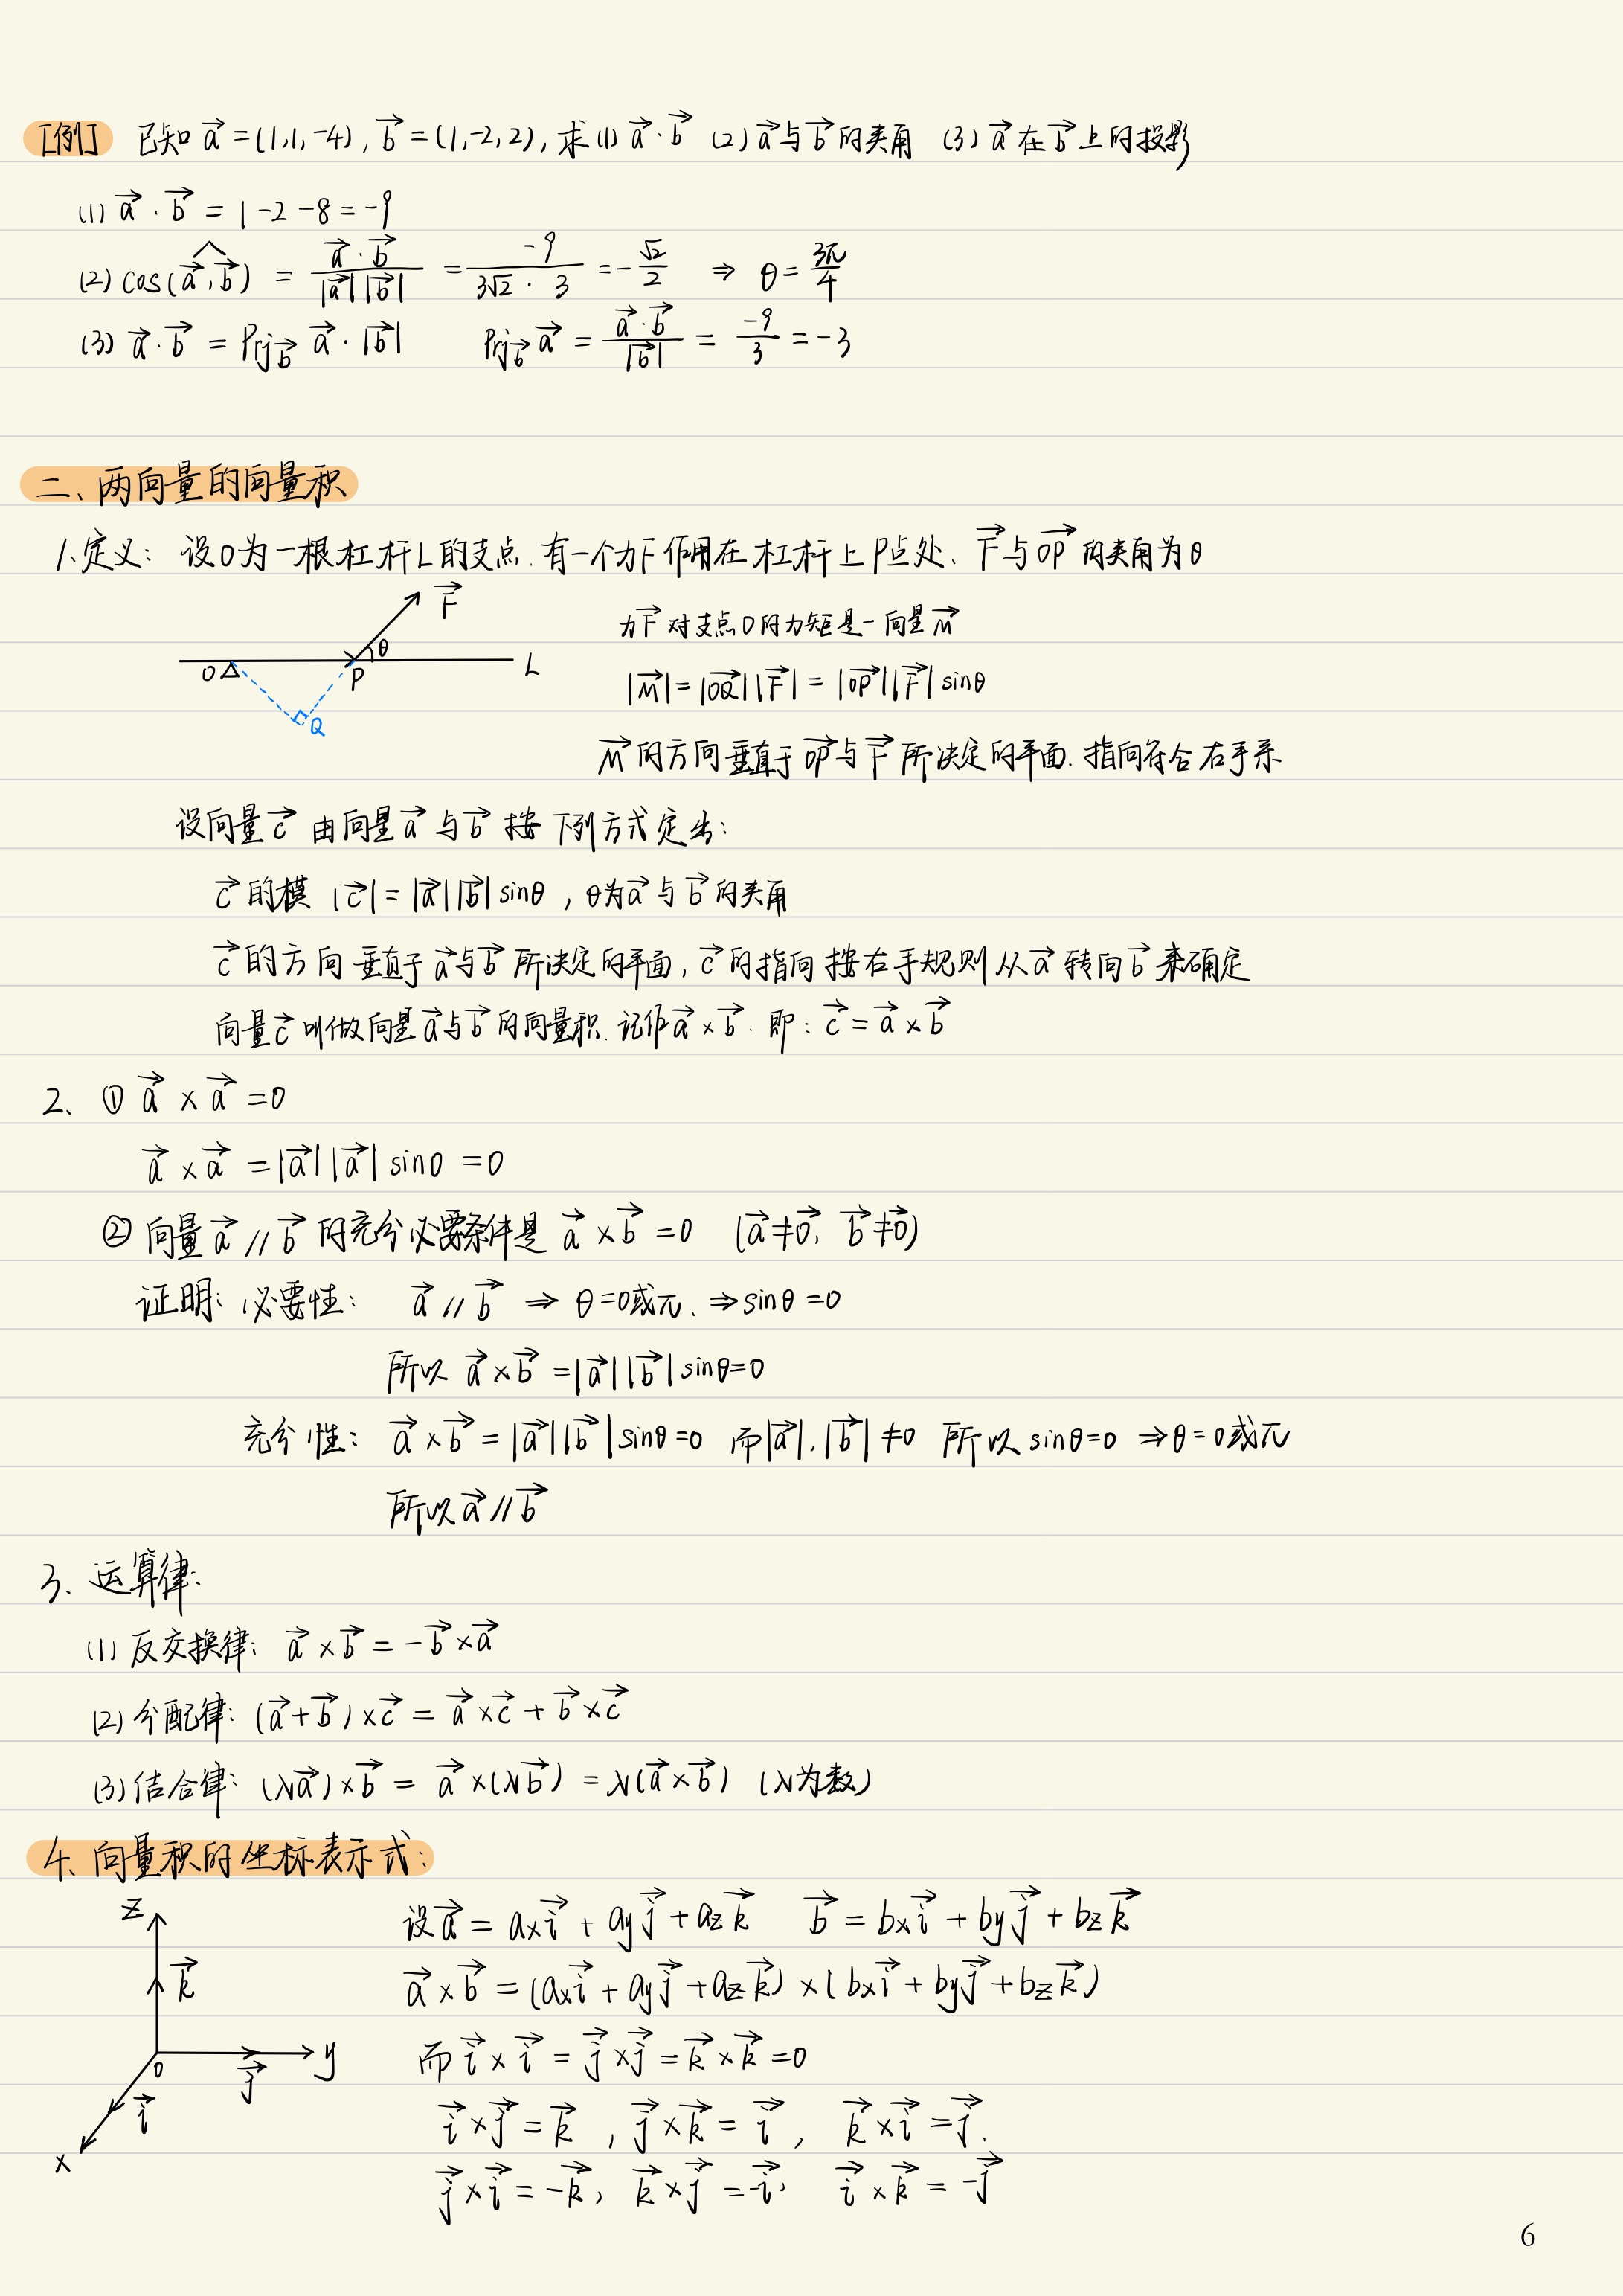 [例] 已知 $\vec{a}=(1,1,-4)$, $\vec{b}=(1,-2,2)$, 求 (1) $\vec{a}\cdot\vec{b}$ (2) $\vec{a}$与$\vec{b}$的夹角 (3) $\vec{a}$在$\vec{b}$上的投影
(1) $\vec{a}\cdot\vec{b}=1-2-8=-9$
(2) $\cos(\widehat{\vec{a},\vec{b}})=\frac{\vec{a}\cdot\vec{b}}{|\vec{a}||\vec{b}|}=\frac{-9}{3\sqrt{2}\cdot 3}=-\frac{\sqrt{2}}{2}$ ⇒ $\theta=\frac{3\pi}{4}$
(3) $\vec{a}\cdot\vec{b}=Prj_{\vec{b}}\vec{a}\cdot|\vec{b}|$ $Prj_{\vec{b}}\vec{a}=\frac{\vec{a}\cdot\vec{b}}{|\vec{b}|}=\frac{-9}{3}=-3$
二、两向量的向量积
1.定义: 设O为一根杠杆L的支点.有一个力F作用在杠杆上P点处、$\vec{F}$与$\vec{OP}$的夹角为θ
$\vec{F}$
θ
O
P
L
Q
力$\vec{F}$对支点O的力矩是一向量$\vec{M}$
$|\vec{M}|=|\vec{OQ}||\vec{F}|=|\vec{OP}||\vec{F}|\sin\theta$
$\vec{M}$的方向垂直于$\vec{OP}$与$\vec{F}$所决定的平面.指向符合右手系
设向量$\vec{c}$由向量$\vec{a}$与$\vec{b}$按下列方式定出:
$\vec{c}$的模 $|\vec{c}|=|\vec{a}||\vec{b}|\sin\theta$, θ为$\vec{a}$与$\vec{b}$的夹角
$\vec{c}$的方向垂直于$\vec{a}$与$\vec{b}$所决定的平面, $\vec{c}$的指向按右手规则从$\vec{a}$转向$\vec{b}$来确定
向量$\vec{c}$叫做向量$\vec{a}$与$\vec{b}$的向量积.记作$\vec{a}\times\vec{b}$.即: $\vec{c}=\vec{a}\times\vec{b}$
2、① $\vec{a}\times\vec{a}=0$
$\vec{a}\times\vec{a}=|\vec{a}||\vec{a}|\sin 0=0$
② 向量$\vec{a}//\vec{b}$的充分必要条件是 $\vec{a}\times\vec{b}=0$ ($\vec{a}\neq\vec{0}$, $\vec{b}\neq\vec{0}$)
证明: 必要性: $\vec{a}//\vec{b}$ ⇒ θ=0或π. ⇒ $\sin\theta=0$
所以 $\vec{a}\times\vec{b}=|\vec{a}||\vec{b}|\sin\theta=0$
充分性: $\vec{a}\times\vec{b}=|\vec{a}||\vec{b}|\sin\theta=0$ 而$|\vec{a}|,|\vec{b}|\neq 0$ 所以 $\sin\theta=0$ ⇒ θ=0或π
所以$\vec{a}//\vec{b}$
3. 运算律:
(1) 反交换律: $\vec{a}\times\vec{b}=-\vec{b}\times\vec{a}$
(2) 分配律: $(\vec{a}+\vec{b})\times\vec{c}=\vec{a}\times\vec{c}+\vec{b}\times\vec{c}$
(3) 结合律: $(\lambda\vec{a})\times\vec{b}=\vec{a}\times(\lambda\vec{b})=\lambda(\vec{a}\times\vec{b})$ (λ为数)
4、向量积的坐标表示式:
z
$\vec{k}$
0
$\vec{j}$
y
$\vec{i}$
x
设$\vec{a}=a_x\vec{i}+a_y\vec{j}+a_z\vec{k}$ $\vec{b}=b_x\vec{i}+b_y\vec{j}+b_z\vec{k}$
$\vec{a}\times\vec{b}=(a_x\vec{i}+a_y\vec{j}+a_z\vec{k})\times(b_x\vec{i}+b_y\vec{j}+b_z\vec{k})$
而 $\vec{i}\times\vec{i}=\vec{j}\times\vec{j}=\vec{k}\times\vec{k}=0$
$\vec{i}\times\vec{j}=\vec{k}$, $\vec{j}\times\vec{k}=\vec{i}$, $\vec{k}\times\vec{i}=\vec{j}$.
$\vec{j}\times\vec{i}=-\vec{k}$, $\vec{k}\times\vec{j}=-\vec{i}$, $\vec{i}\times\vec{k}=-\vec{j}$
6